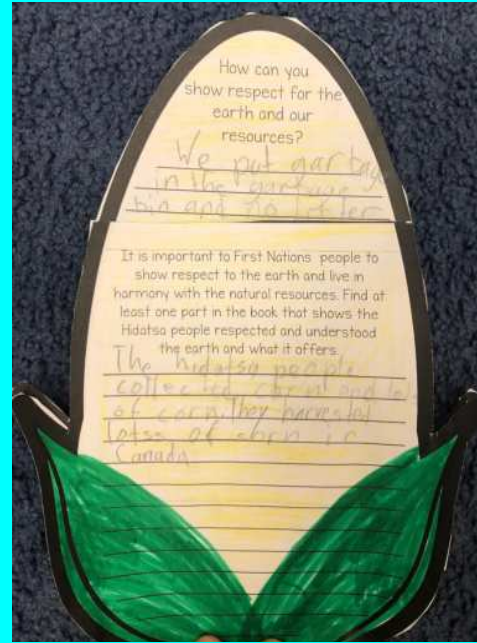 How can you
show respect for the
earth and our
resources?
We put garbage
in the garbage
bin and no litter
It is important to First Nations people to
show respect to the earth and live in
harmony with the natural resources. Find at
least one part in the book that shows the
Hidatsa people respected and understood
the earth and what it offers.
The hidatsa people
collected corn and lots
of corn. They harvested
lotss of corn in
Canada